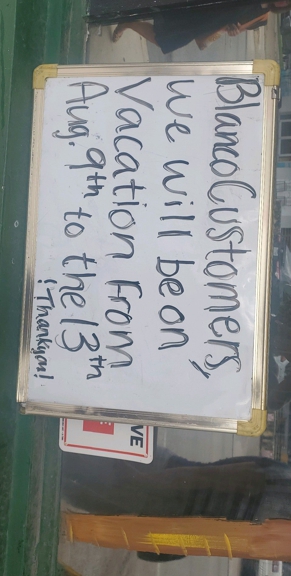 Blanco Customers,
we will be on
Vacation from
Aug. 9th to the 13th
¡Thankyou!
VE